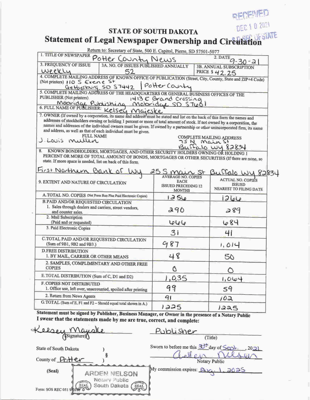 RECEIVED
DEC 10 2021
STATE OF SOUTH DAKOTA
Statement of Legal Newspaper Ownership and Circulation
Return to: Secretary of State, 500 E. Capitol, Pierre, SD 57501-5077
1. TITLE OF NEWSPAPER Potter County News
2. DATE 9-30-21
3. FREQUENCY OF ISSUE weekly
3A. NO. OF ISSUES PUBLISHED ANNUALLY 52
3B. ANNUAL SUBSCRIPTION PRICE $ 42.25
4. COMPLETE MAILING ADDRESS OF KNOWN OFFICE OF PUBLICATION (Street, City, County, State and ZIP+4 Code) (Not printer)
110 S Exene St
Gettysburg SD 57442 Potter County
5. COMPLETE MAILING ADDRESS OF THE HEADQUARTERS OR GENERAL BUSINESS OFFICES OF THE PUBLISHER (Not printer) 1413 E Grand Crossing
Mobridge Publishing Mobridge SD 57601
6. FULL NAME OF PUBLISHER: Kelsey Majeske
7. OWNER (If owned by a corporation, its name and address must be stated and also on the back of this form the names and
addresses of shareholders owning or holding 1 percent or more of total amount of stock. If not owned by a corporation, the
names and addresses of the individual owners must be given. If owned by a partnership or other unincorporated firm, its name
and address, as well as that of each individual must be given.
FULL NAME COMPLETE MAILING ADDRESS
Louis Mullen 73 N Main St
Buffalo Wy 82834
8. KNOWN BONDHOLDERS, MORTGAGEES, AND OTHER SECURITY HOLDERS OWNING OR HOLDING 1
PERCENT OR MORE OF TOTAL AMOUNT OF BONDS, MORTGAGES OR OTHER SECURITIES (If there are none, so
state. If more space is needed, list on back of this form.
First Northern Bank of Wy 25 S main St Buffalo Wy 82834
9. EXTENT AND NATURE OF CIRCULATION
AVERAGE NO. COPIES EACH ISSUES PRECEDING 12 MONTHS
ACTUAL NO. COPIES ISSUED NEAREST TO FILING DATE
A. TOTAL NO. COPIES
B. PAID AND/OR REQUESTED CIRCULATION
1. Sales through dealers and carriers, street vendors, and counter sales. 290 289
2. Mail Subscription (Paid and/or requested) 666 684
3. Paid Electronic Copies 31 41
C. TOTAL PAID AND/OR REQUESTED CIRCULATION
(Sum of 9B1, 9B2 and 9B3) 987 1,014
D. FREE DISTRIBUTION
1. BY MAIL, CARRIER OR OTHER MEANS 48 50
2. SAMPLES, COMPLIMENTARY AND OTHER FREE COPIES 0 0
E. TOTAL DISTRIBUTION (Sum of C, D1 and D2) 1,035 1,064
F. COPIES NOT DISTRIBUTED
1. Office use, left over, unaccounted, spoiled after printing 99 59
2. Return from News Agents 91 102
G. TOTAL (Sum of E, F1 and F2 - Should equal total shown in A.) 1225 1225
Statement must be signed by Publisher, Business Manager, or Owner in the presence of a Notary Public
I swear that the statements made by me are true, correct, and complete:
Kelsey Majeske Publisher
(Signature) (Title)
State of South Dakota
County of Potter
Sworn to before me this 30th day of Sept, 2021
Arden Nelson
Notary Public
(Seal)
My commission expires: Aug 1, 2025
ARDEN NELSON
Notary Public
South Dakota
SEAL SEAL